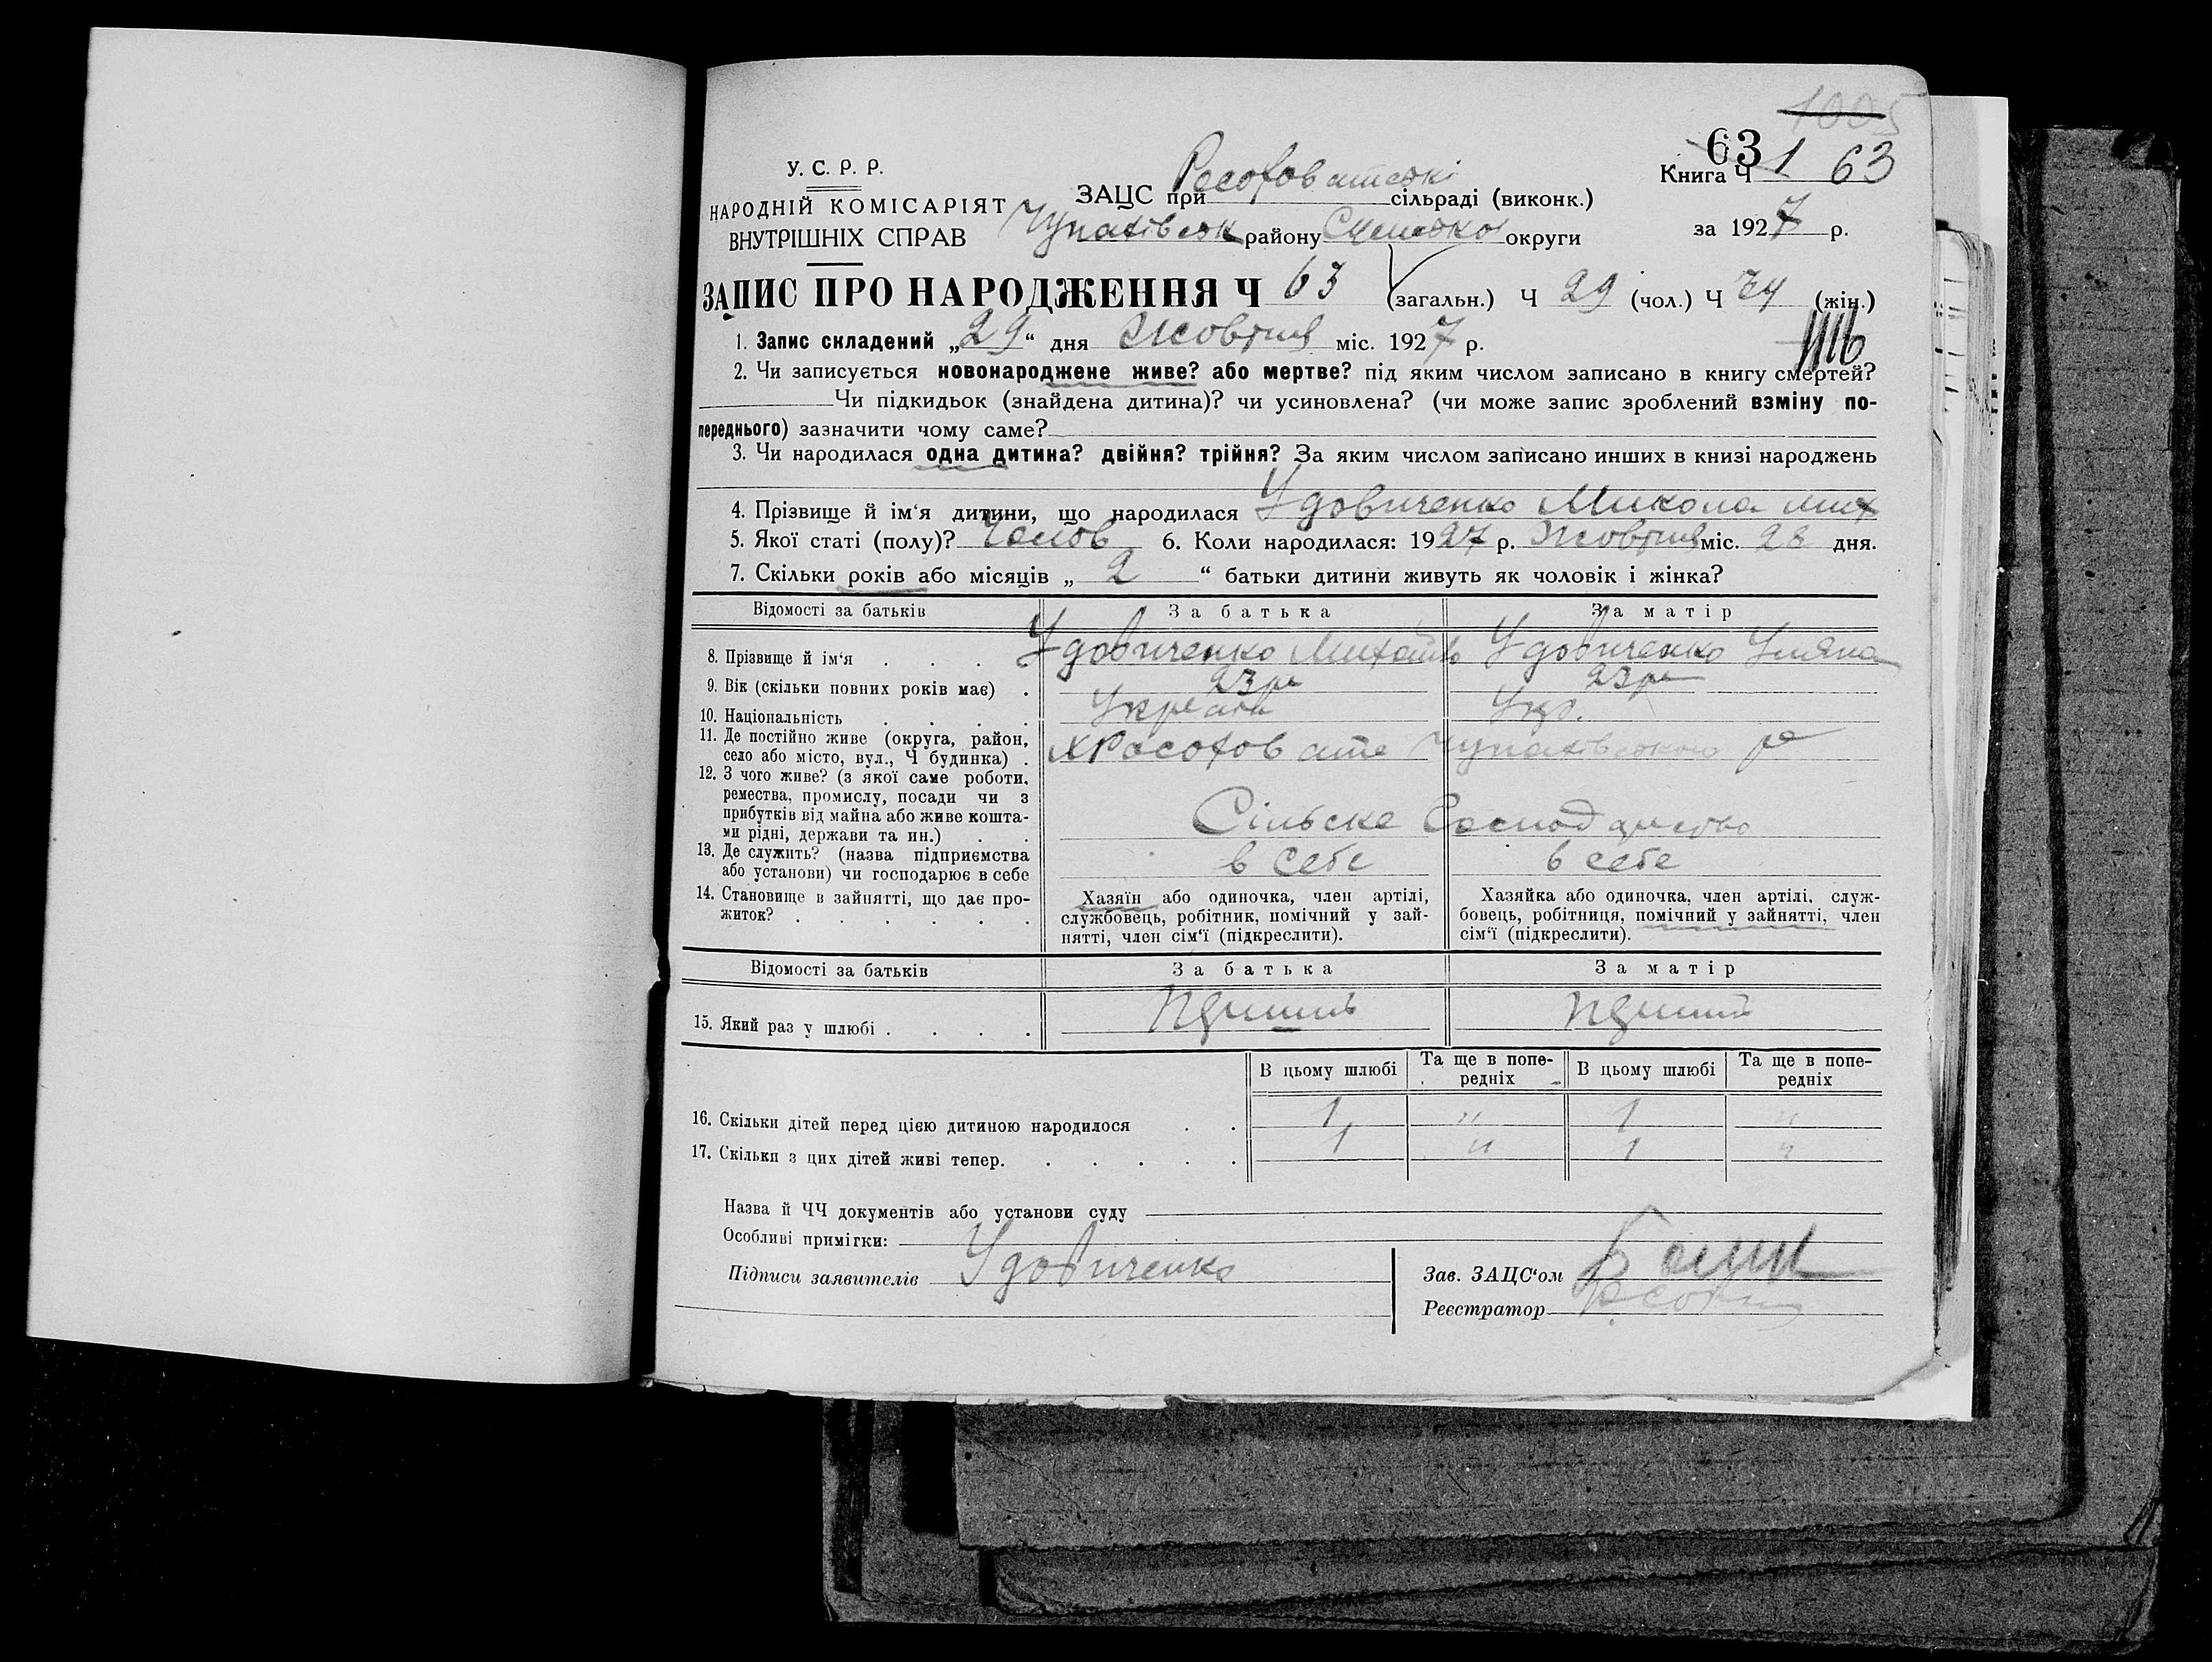 1005
63
У. С. Р. Р.
НАРОДНІЙ КОМІСАРІЯТ
ВНУТРІШНІХ СПРАВ
ЗАЦС при Росоховатській сільраді (виконк.)
Чупахівськ району Сумської округи
Книга Ч 1 63
за 1927 р.
ЗАПИС ПРО НАРОДЖЕННЯ Ч 63 (загальн.) Ч 29 (чол.) Ч 34 (жін.)
1. Запис складений „29“ дня Жовтня міс. 1927 р.
2. Чи записується новонароджене живе? або мертве? під яким числом записано в книгу смертей?
Чи підкидьок (знайдена дитина)? чи усиновлена? (чи може запис зроблений взміну по-
переднього) зазначити чому саме?
3. Чи народилася одна дитина? двійня? трійня? За яким числом записано инших в книзі народжень
4. Прізвище й ім‘я дитини, що народилася Удовиченко Микола мих
5. Якої статі (полу)? Чолов 6. Коли народилася: 1927 р. Жовтня міс. 28 дня.
7. Скільки років або місяців „ 2 “ батьки дитини живуть як чоловік і жінка?
Відомості за батьків За батька За матір
8. Прізвище й ім‘я . . . Удовиченко Михайло Удовиченко Уляна
9. Вік (скільки повних років має) . 23 р 23 р
10. Національність . . . . Укр.
11. Де постійно живе (округа, район,
село або місто, вул., Ч будинка) . х Росоховате Чупахівського р
12. З чого живе? (з якої саме роботи,
ремества, промислу, посади чи з
прибутків від майна або живе кошта-
ми рідні, держави та ин.) . . Сільске Господарство
13. Де служить? (назва підприємства
або установи) чи господарює в себе в себе в себе
14. Становище в зайнятті, що дає про-
житок? . . . . . .
Хазяїн або одиночка, член артілі,
службовець, робітник, помічний у зай-
нятті, член сім‘ї (підкреслити).
Хазяйка або одиночка, член артілі, служ-
бовець, робітниця, помічний у зайнятті, член
сім‘ї (підкреслити).
Відомості за батьків За батька За матір
15. Який раз у шлюбі . . . .
В цьому шлюбі Та ще в попе-редніх В цьому шлюбі Та ще в попе-редніх
16. Скільки дітей перед цією дитиною народилося . . 1 " 1 "
17. Скільки з цих дітей живі тепер. . . . . . 1 " 1 "
Назва й ЧЧ документів або установи суду
Особливі примітки:
Підписи заявителів Удовиченко
Зав. ЗАЦС‘ом
Реєстратор